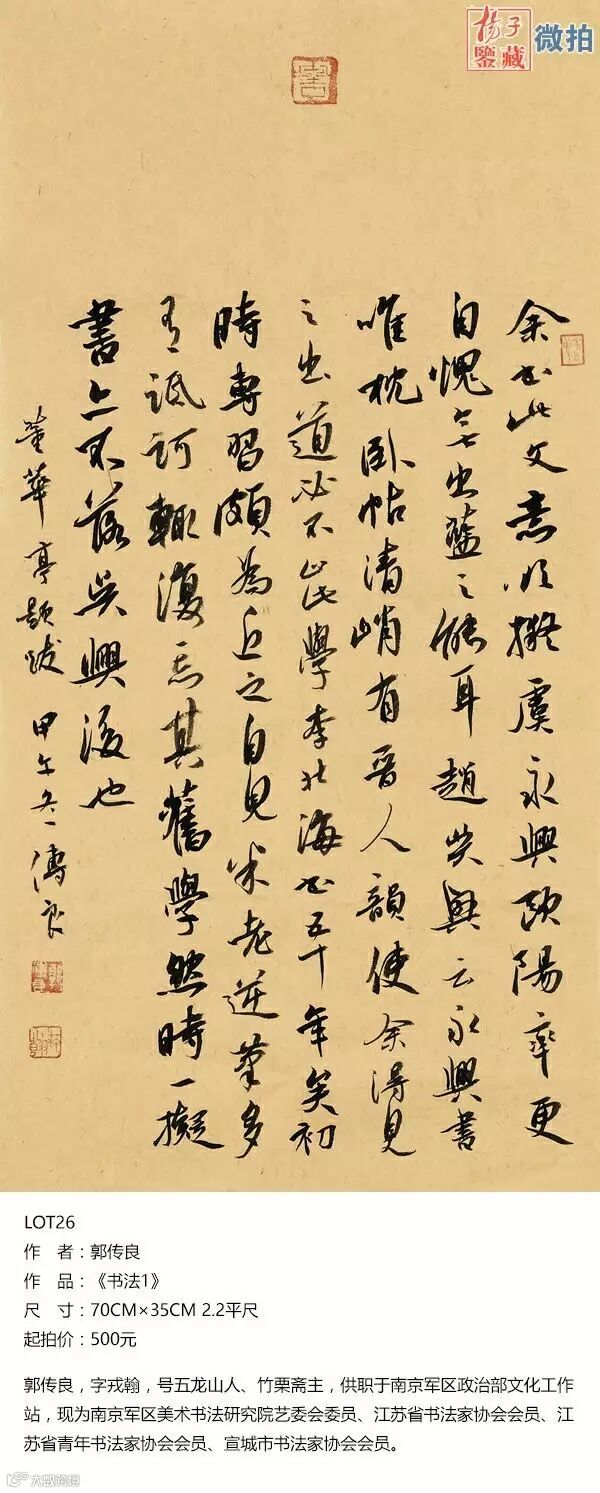 楊子
鑒藏 微拍
余书此文意以擬虞永興歐陽率更
自愧无出藍之能耳趙吳興云永興書
唯枕臥帖清峭有晉人韻使余得見
之出道必不此學李北海书五十年矣初
時專習頗為近之自見米老逆筆多
有詆訶輒復忘其舊學然時一擬
書亦不落吳興後也
董華亭題跋 甲午冬 傳良
LOT26
作 者：郭传良
作 品：《书法1》
尺 寸：70CM×35CM 2.2平尺
起拍价：500元
郭传良，字戎翰，号五龙山人、竹栗斋主，供职于南京军区政治部文化工作
站，现为南京军区美术书法研究院艺委会委员、江苏省书法家协会会员、江
苏省青年书法家协会会员、宣城市书法家协会会员。